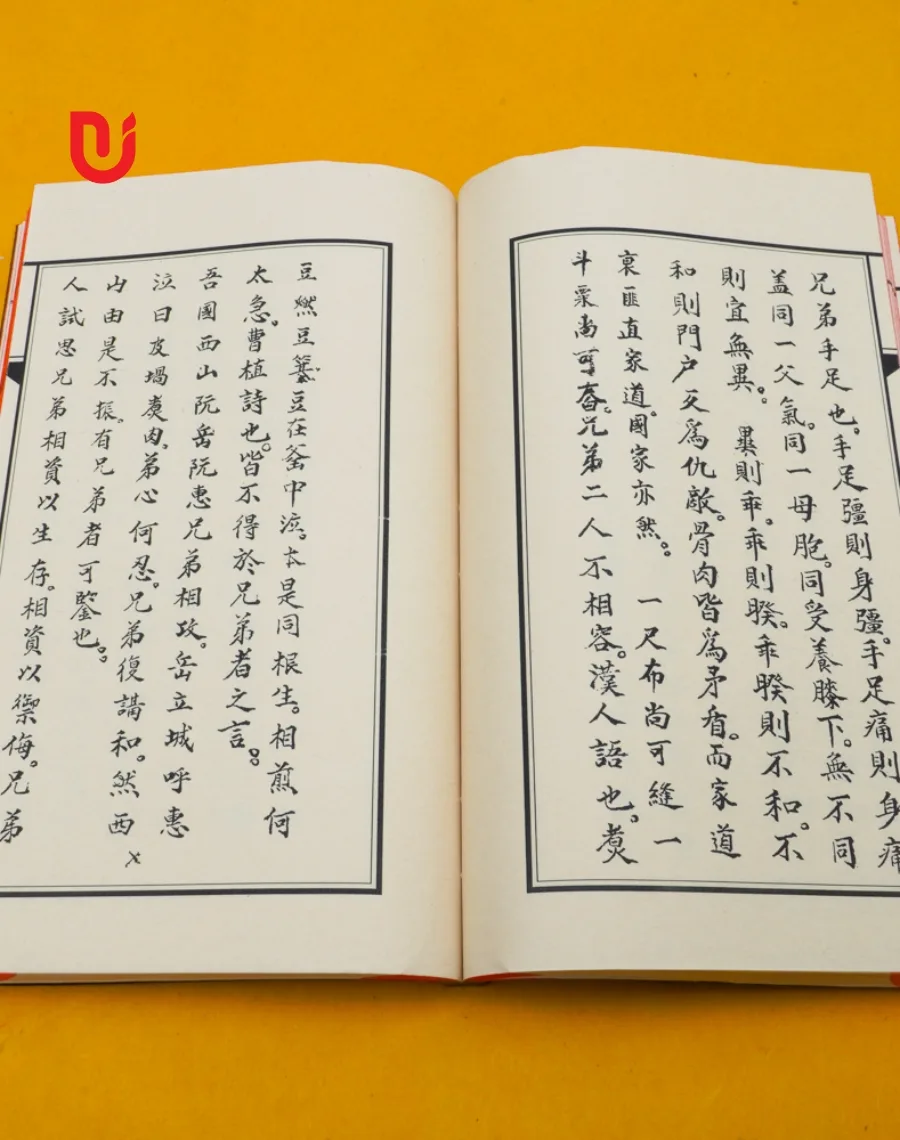 兄弟手足也。手足彊則身彊。手足痛則身痛
盖同一父氣。同一母胞。同受養膝下。無不同
則宜無異。異則乖。乖則睽。乖睽則不和。不
和則門户反爲仇敵。骨肉皆爲矛盾。而家道
衰匪直家道。國家亦然。一尺布尚可縫一
斗粟尚可舂。兄弟二人不相容。漢人語也。煑
豆燃豆箕豆在釜中泣。本是同根生。相煎何
太急。曹植詩也。皆不得於兄弟者之言。
吾國西山阮岳阮惠兄弟相攻。岳立城呼惠
泣曰皮堝煑肉。弟心何忍。兄弟復講和。然西
山由是不振。有兄弟者可鑒也。
人試思兄弟相資以生存。相資以禦侮。兄弟